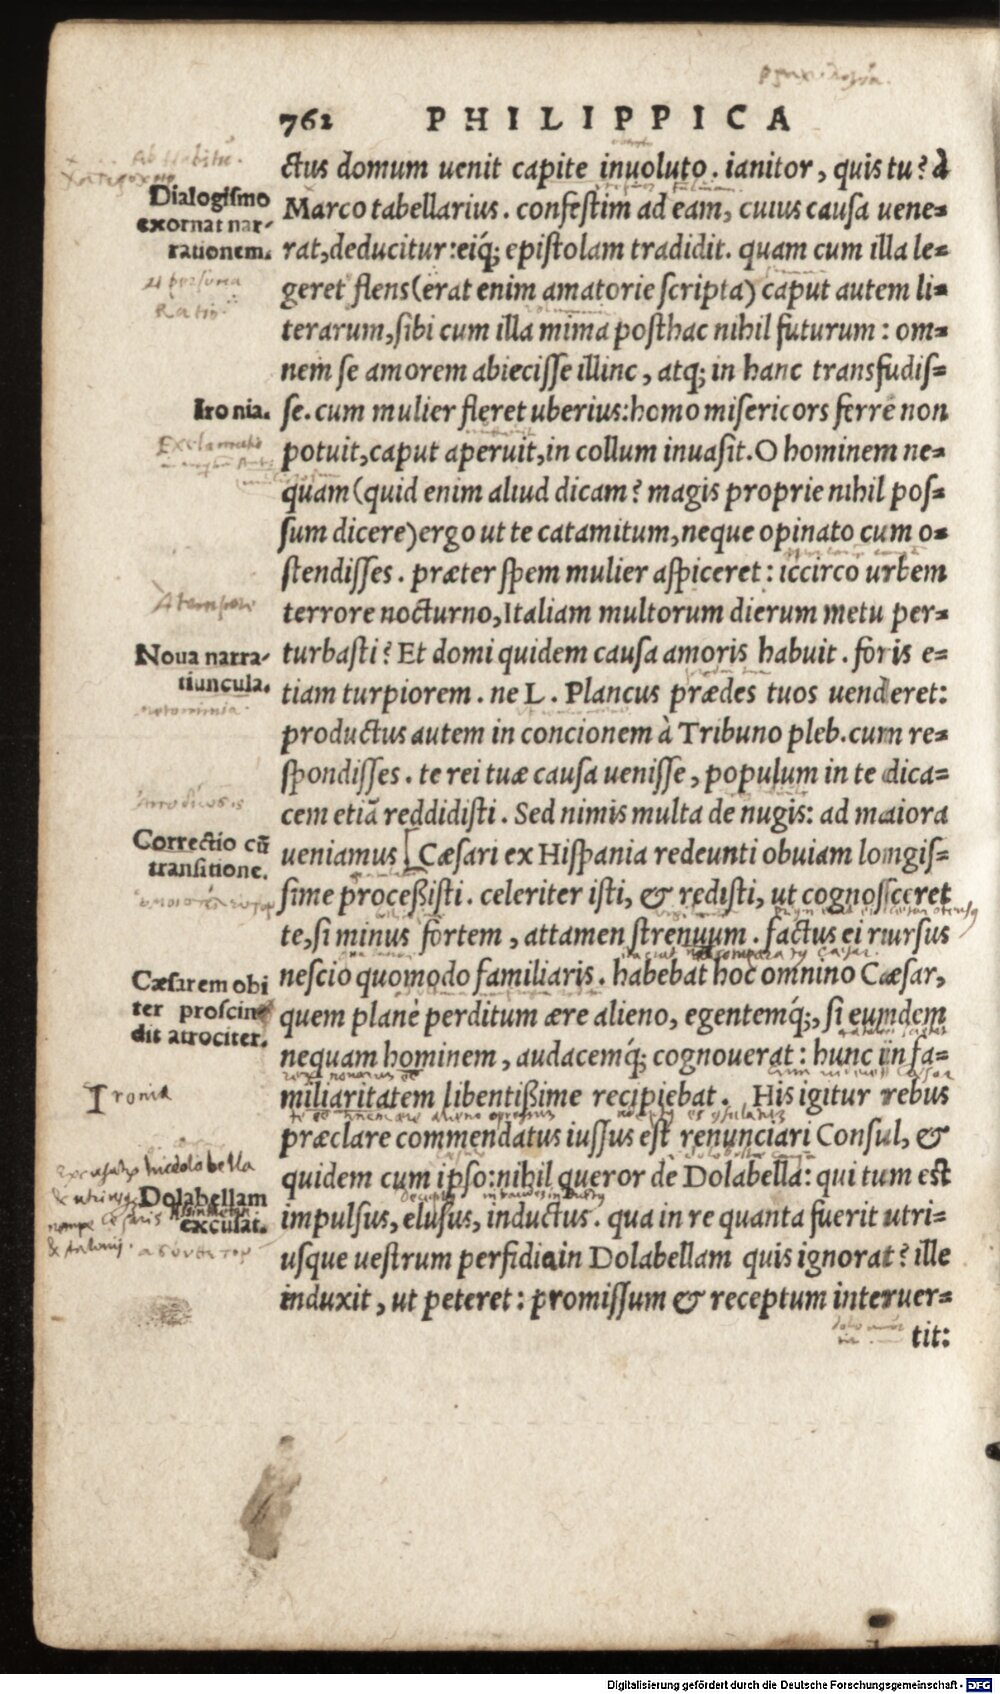 762 PHILIPPICA
ctus domum uenit capite inuoluto. ianitor, quis tu? à
Marco tabellarius. confestim ad eam, cuius causa uene=
rat, deducitur: eiq́; epistolam tradidit. quam cum illa le=
geret flens (erat enim amatorie scripta) caput autem li=
terarum, sibi cum illa mima posthac nihil futurum: om=
nem se amorem abiecisse illinc, atq; in hanc transfudis=
se. cum mulier fleret uberius: homo misericors ferre non
potuit, caput aperuit, in collum inuasit. O hominem ne=
quam (quid enim aliud dicam? magis proprie nihil pos=
sum dicere) ergo ut te catamitum, neque opinato cum o=
stendisses. præter spem mulier aspiceret: iccirco urbem
terrore nocturno, Italiam multorum dierum metu per=
turbasti? Et domi quidem causa amoris habuit. foris e=
tiam turpiorem. ne L. Plancus prædes tuos uenderet:
productus autem in concionem à Tribuno pleb. cum re=
spondisses. te rei tuæ causa uenisse, populum in te dica=
cem etiã reddidisti. Sed nimis multa de nugis: ad maiora
ueniamus. Cæsari ex Hispania redeunti obuiam longis=
sime proceßisti. celeriter isti, & redisti, ut cognosceret
te, si minus fortem, attamen strenuum. factus ei rursus
nescio quomodo familiaris. habebat hoc omnino Cæsar,
quem planè perditum ære alieno, egentemq́;, si eumdem
nequam hominem, audacemq́; cognouerat: hunc in fa=
miliaritatem libentißime recipiebat. His igitur rebus
præclare commendatus iussus est renunciari Consul, &
quidem cum ipso: nihil queror dè Dolabella: qui tum est
impulsus, elusus, inductus. qua in re quanta fuerit utri=
usque uestrum perfidia in Dolabellam quis ignorat? ille
induxit, ut peteret: promissum & receptum interuer=
tit:
Dialogismo
exornat nar-
rationem.
Ratio
Ironia.
Exclamatio
A tempore
Noua narra-
tiuncula.
Correctio cũ
transitione.
Cæsarem obi
ter proscin=
dit atrociter.
Ironia
Dolabellam
excusat.
Digitalisierung gefördert durch die Deutsche Forschungsgemeinschaft - DFG